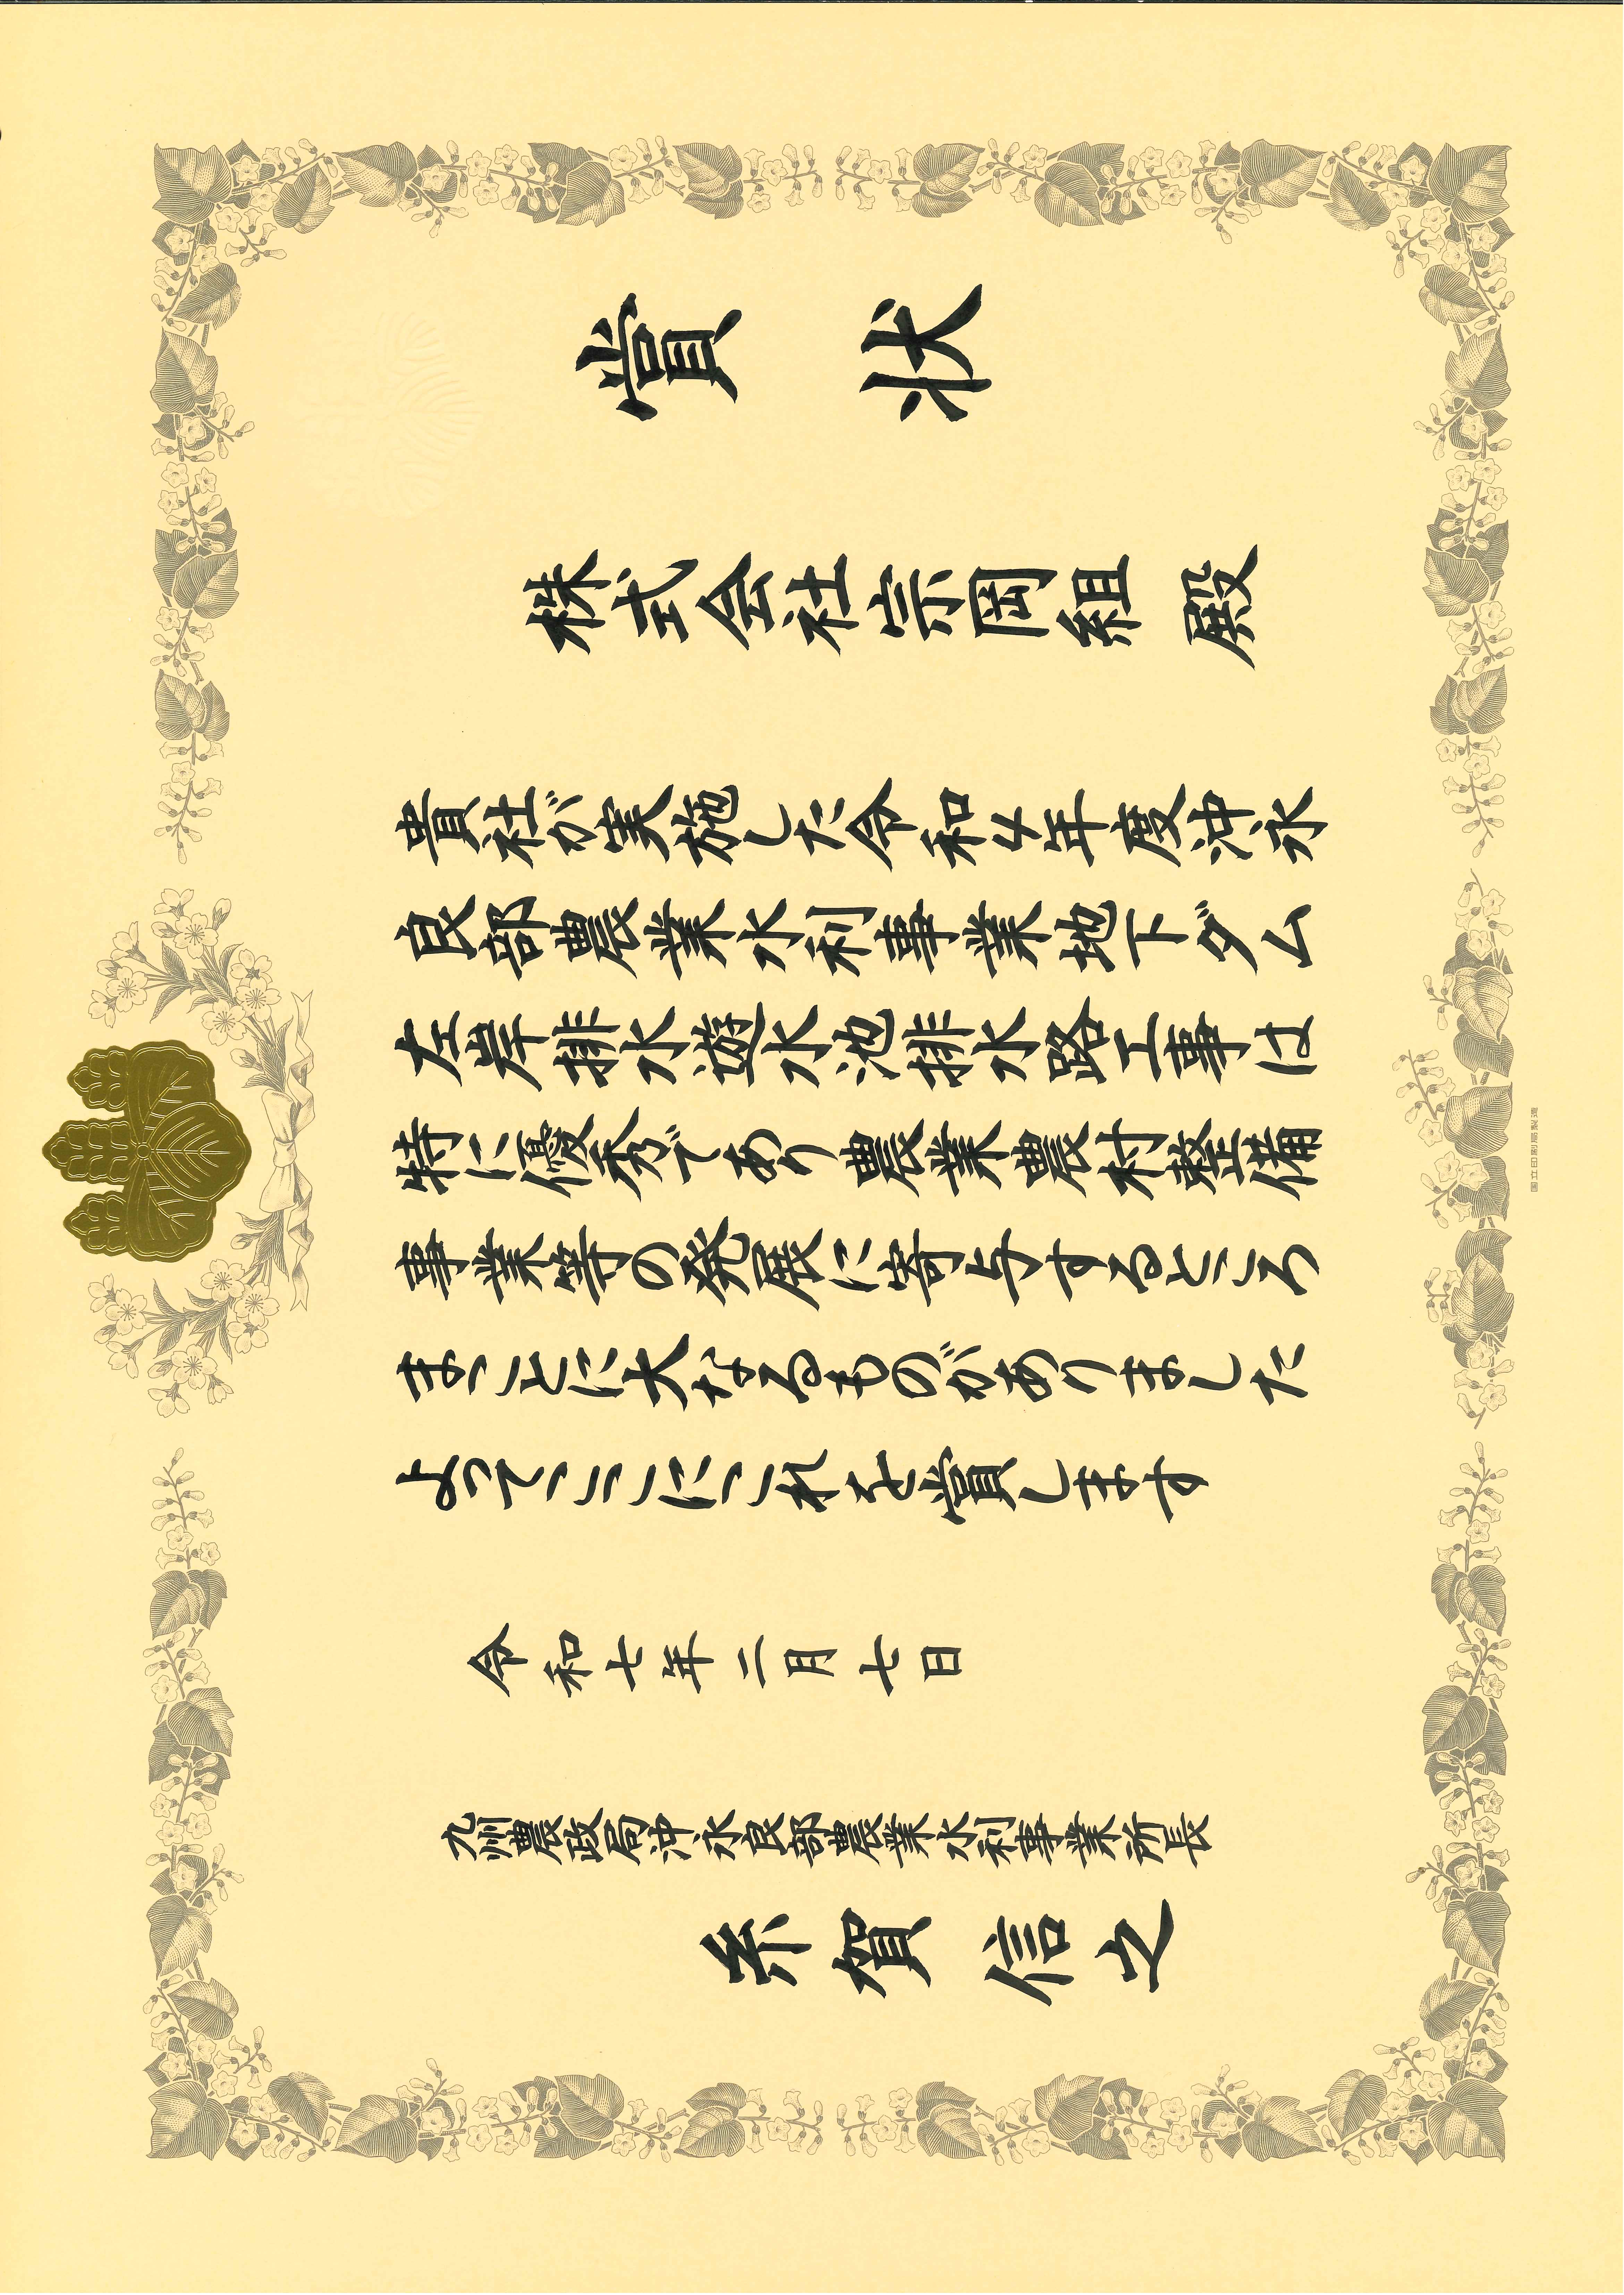 賞状
株式会社宗岡組 殿
貴社が実施した令和4年度沖永
良部農業水利事業地下ダム
左岸排水遊水池排水路工事は
特に優秀であり農業農村整備
事業等の発展に寄与するところ
まことに大なるものがありました
よってここにこれを賞します
令和七年二月七日
九州農政局沖永良部農業水利事業所長
糸賀信之
国立印刷局製造